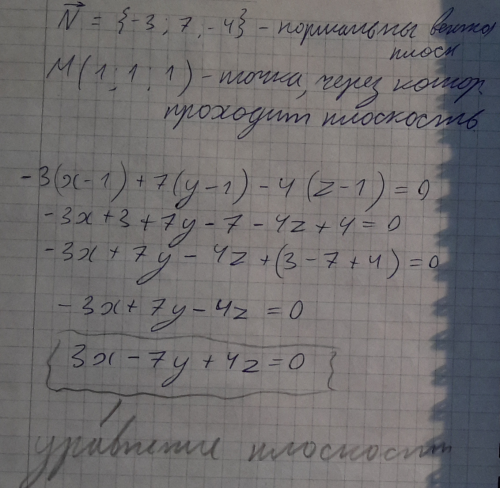 N⃗ = {-3; 7; -4} - нормальный вектор
плоск
M(1; 1; 1) - точка, через котор
проходит плоскость
-3(x-1) + 7(y-1) - 4(z-1) = 0
-3x + 3 + 7y - 7 - 4z + 4 = 0
-3x + 7y - 4z + (3 - 7 + 4) = 0
-3x + 7y - 4z = 0
3x - 7y + 4z = 0
уравнение плоскости